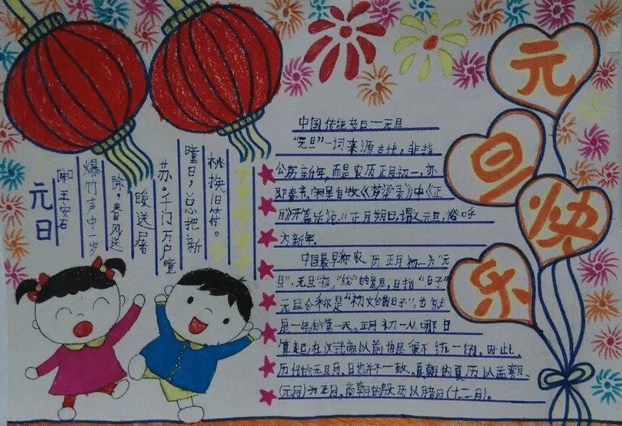 元旦快乐
元日
王安石
爆竹声中一
除，春风送
暖送屠
苏。千门万户曈
曈日，总把新
桃换旧符。
中国传统节日—元旦
"元旦"一词来源古代，非指
公历新年，而是农历正月初一，亦
即春节，吴自牧《梦梁录》中《正
月》开篇话说："正月朔日，谓之元旦，俗呼
为新年。
中国最早称农历正月初一为"元
旦"，元是"初"，"始"的意思，旦指"日子"
元旦合称是"初始的日子"，也
是一年的第一天。正月初一从哪日
算起，在汉武帝以前也是很不统一的，因此，
历代的元旦月、日也并不一致。夏朝的夏历以孟月
(元月)为正月，商朝的殷历以腊月(十二月)。